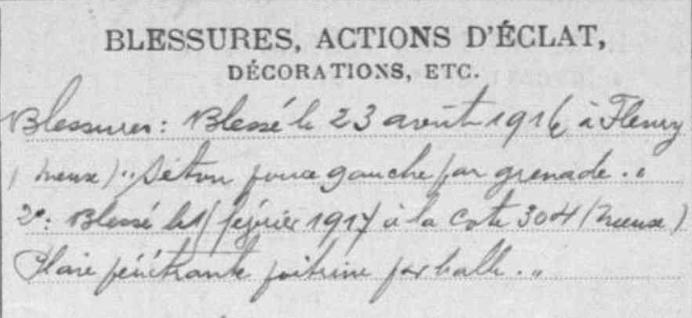 BLESSURES, ACTIONS D'ÉCLAT,
DÉCORATIONS, ETC.
Blessures: Blessé le 23 août 1916 à Fleury
(Meuse) "Séton pouce gauche par grenade. "
2°: Blessé le février 1917 à la cote 304 (Meuse)
Plaie pénétrante poitrine par balle. "